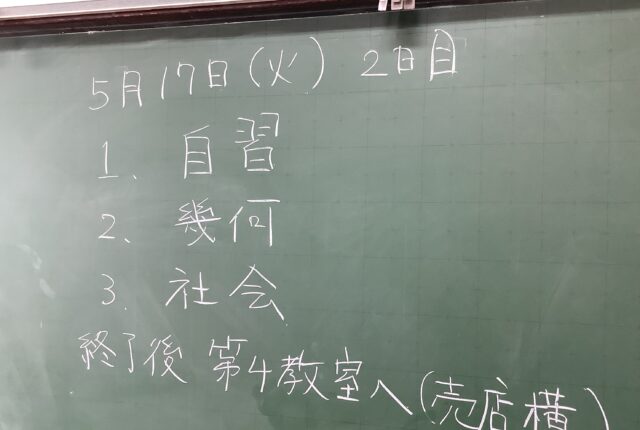 5月17日(火) 2日目
1. 自習
2. 幾何
3. 社会
終了後 第4教室へ(売店横)